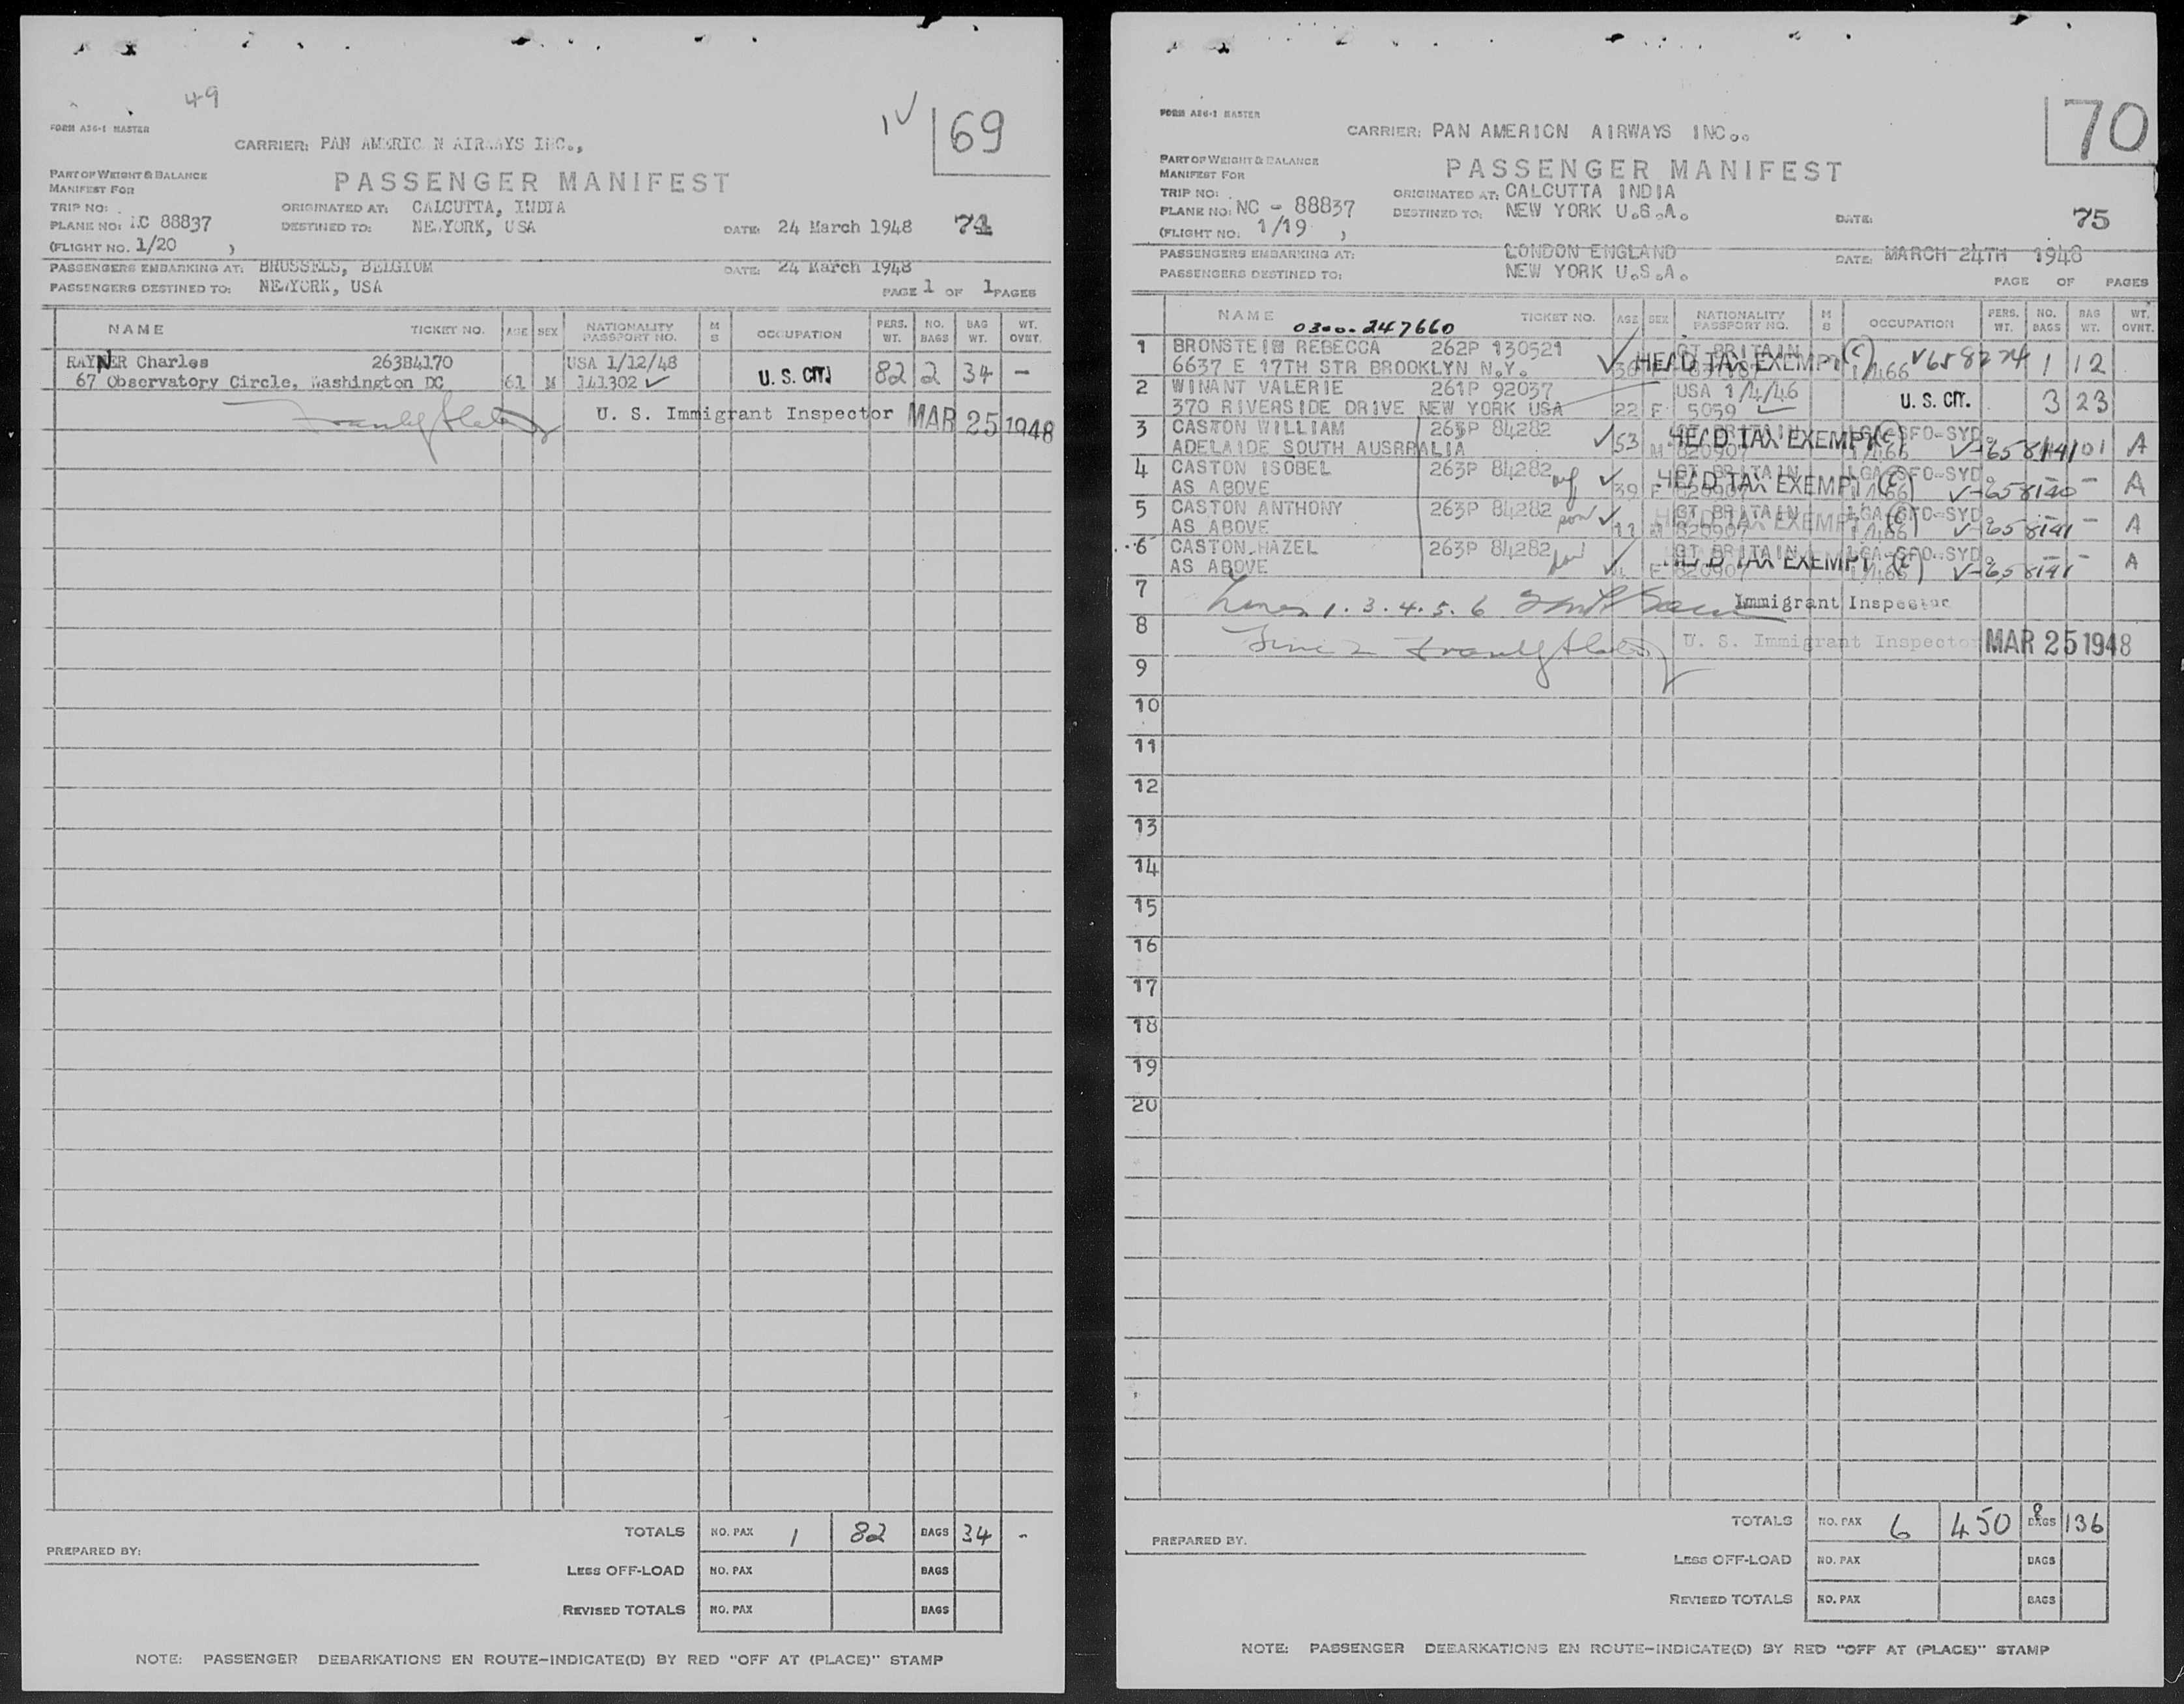 49
1✓ 69
FORM A36-1 MASTER
CARRIER: PAN AMERIC N AIR AYS INC.,
PART OF WEIGHT & BALANCE
MANIFEST FOR
PASSENGER MANIFEST
TRIP NO:
ORIGINATED AT: CALCUTTA, INDIA
PLANE NO: NC 88837
DESTINED TO: NEWYORK, USA
DATE: 24 March 1948 74
(FLIGHT NO. 1/20 )
PASSENGERS EMBARKING AT: BRUSSELS, BELGIUM DATE: 24 March 1948
PASSENGERS DESTINED TO: NEWYORK, USA PAGE 1 OF 1 PAGES
NAME TICKET NO. AGE SEX NATIONALITY PASSPORT NO. M S OCCUPATION PERS. WT. NO. BAGS BAG WT. WT. OVNT.
RAYNER Charles 263B4170 USA 1/12/48
67 Observatory Circle, Washington DC 61 M 141302 ✓ U. S. CIT. 82 2 34 -
U. S. Immigrant Inspector MAR 25 1948
TOTALS NO. PAX 1 82 BAGS 34 -
PREPARED BY:
LESS OFF-LOAD NO. PAX BAGS
REVISED TOTALS NO. PAX BAGS
NOTE: PASSENGER DEBARKATIONS EN ROUTE-INDICATE(D) BY RED "OFF AT (PLACE)" STAMP
70
FORM A36-1 MASTER
CARRIER: PAN AMERICN AIRWAYS INC..
PART OF WEIGHT & BALANCE
MANIFEST FOR
PASSENGER MANIFEST
TRIP NO:
ORIGINATED AT: CALCUTTA INDIA
PLANE NO: NC - 88837
DESTINED TO: NEW YORK U.S.A. DATE: 75
(FLIGHT NO: 1/19 )
PASSENGERS EMBARKING AT: LONDON ENGLAND DATE: MARCH 24TH 1948
PASSENGERS DESTINED TO: NEW YORK U.S.A.
PAGE OF PAGES
NAME TICKET NO. AGE SEX NATIONALITY PASSPORT NO. M S OCCUPATION PERS. WT. NO. BAGS BAG WT. WT. OVNT.
0300-247660
1 BRONSTEIN REBECCA 262P 130521 GT BRITAIN
6637 E 17TH STR BROOKLYN N.Y. ✓ HEAD TAX EXEMPT (C) 1/466 V658274 1 12
2 WINANT VALERIE 261P 92037 USA 1/4/46
370 RIVERSIDE DRIVE NEW YORK USA 22 F 5059 ✓ U. S. CIT. 3 23
3 CASTON WILLIAM 263P 84282 LGA-SFO-SYD.
ADELAIDE SOUTH AUSRRALIA ✓ 53 M HEAD TAX EXEMPT (C) 820907 101 A
4 CASTON ISOBEL 263P 84282 wf GT BRITAIN LGA-SFO-SYD.
AS ABOVE ✓ 39 F HEAD TAX EXEMPT (C) 820907 V-1658140 - A
5 CASTON ANTHONY 263P 84282 son GT BRITAIN LGA-SFO-SYD.
AS ABOVE ✓ 11 M HEAD TAX EXEMPT (C) 820907 V-1658141 - - A
6 CASTON HAZEL 263P 84282 GT BRITAIN LGA-SFO-SYD.
AS ABOVE ✓ F HEAD TAX EXEMPT (C) 820907 V-1658141 - - A
7 Lines 1. 3. 4. 5. 6 Immigrant Inspector
8 Line 2 U. S. Immigrant Inspector MAR 25 1948
9
10
11
12
13
14
15
16
17
18
19
20
TOTALS NO. PAX 6 450 8 BAGS 136
PREPARED BY.
LESS OFF-LOAD NO. PAX BAGS
REVISED TOTALS NO. PAX BAGS
NOTE: PASSENGER DEBARKATIONS EN ROUTE-INDICATE(D) BY RED "OFF AT (PLACE)" STAMP